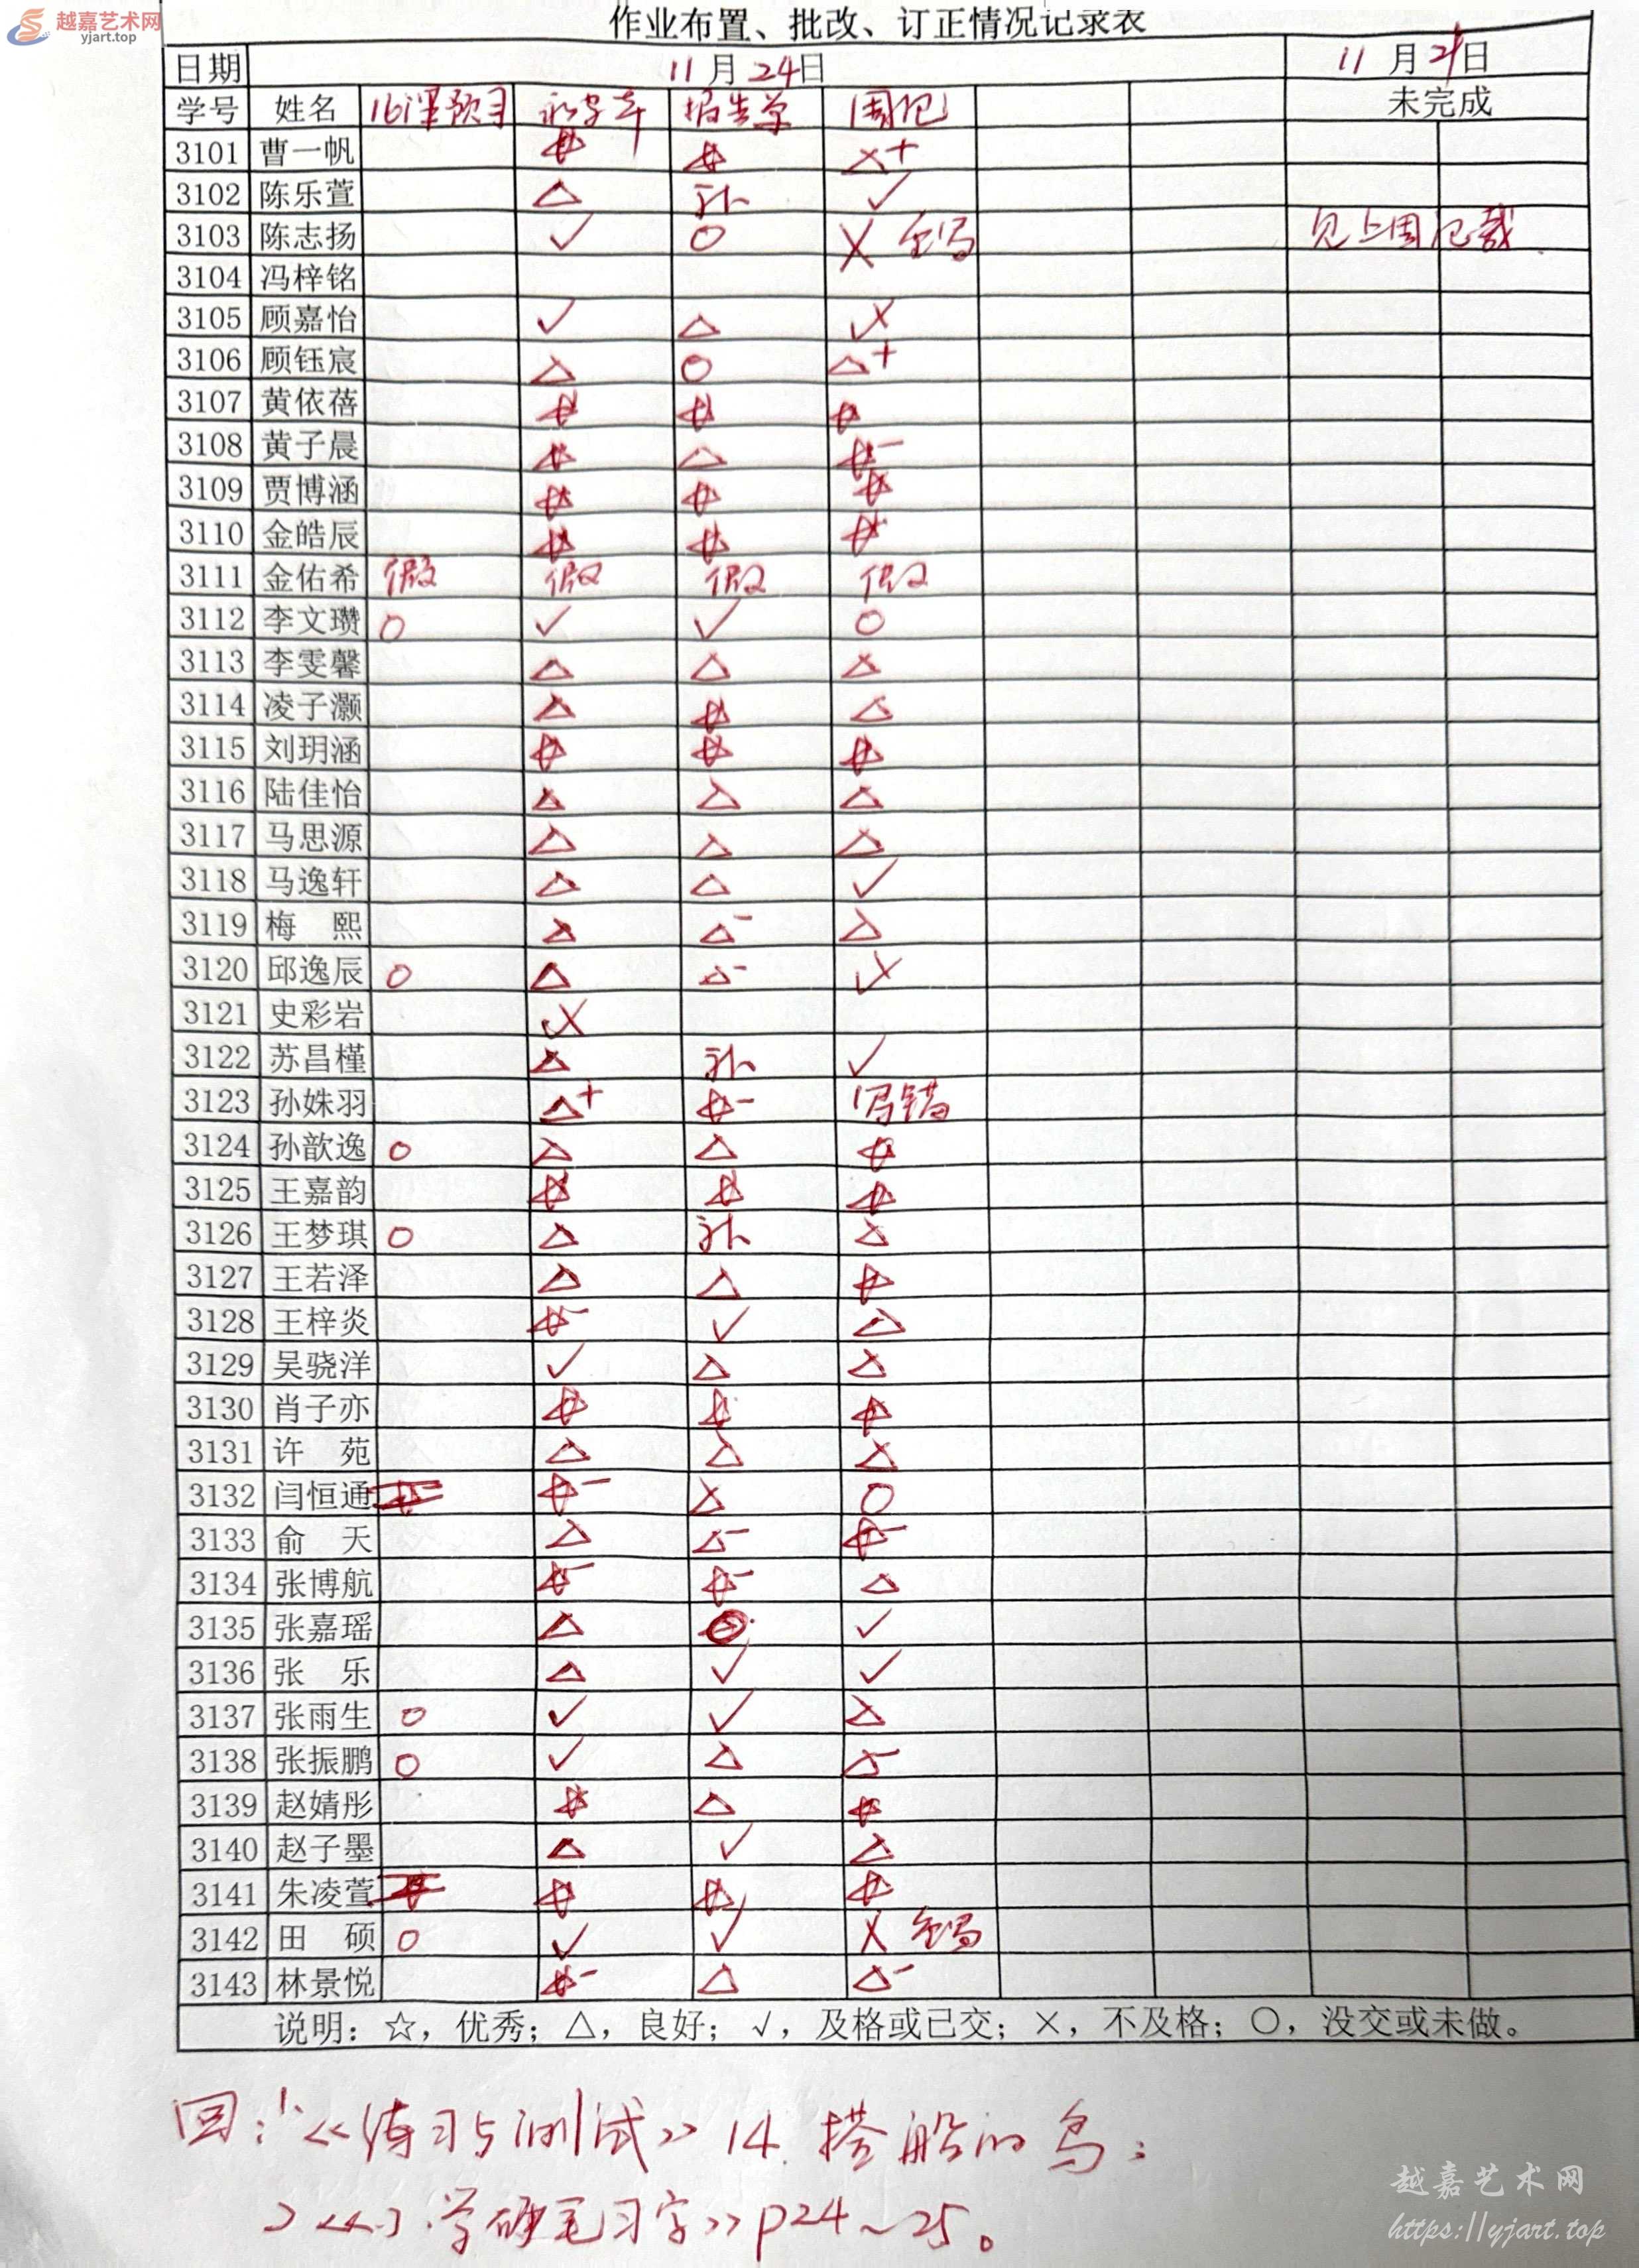 越嘉艺术网
yjart.top
作业布置、批改、订正情况记录表
日期 11月24日 11月21日
学号 姓名 16课预习 报告单 周记 未完成
3101 曹一帆 ☆ ☆ △+
3102 陈乐萱 △ 补 √
3103 陈志扬 √ ○ × 重写 见上周记载
3104 冯梓铭
3105 顾嘉怡 √ △
3106 顾钰宸 △ ○ △+
3107 黄依蓓 ☆ ☆ ☆
3108 黄子晨 ☆ △ ☆-
3109 贾博涵 ☆ ☆ ☆
3110 金皓辰 ☆ ☆ ☆
3111 金佑希 假 假 假 假
3112 李文瓒 ○ √ √ ○
3113 李雯馨 △ △ △
3114 凌子灏 △ ☆ △
3115 刘玥涵 ☆ ☆ ☆
3116 陆佳怡 △ △ △
3117 马思源 △ △ △
3118 马逸轩 △ △ √
3119 梅 熙 △ △- △
3120 邱逸辰 ○ △ △-
3121 史彩岩
3122 苏昌槿 △ 补 √
3123 孙姝羽 △+ ☆- 写错
3124 孙歆逸 ○ △ △ ☆
3125 王嘉韵 ☆ ☆ ☆
3126 王梦琪 ○ △ 补 △
3127 王若泽 △ △ ☆
3128 王梓炎 ☆- √ △
3129 吴骁洋 √ △ △
3130 肖子亦 ☆ ☆ ☆
3131 许 苑 △ △ △
3132 闫恒通 ☆- △ ○
3133 俞 天 △ △- ☆-
3134 张博航 ☆- ☆- △
3135 张嘉瑶 △ √
3136 张 乐 △ √ √
3137 张雨生 ○ √ √ △
3138 张振鹏 ○ √ △ △-
3139 赵婧彤 ☆ △ ☆
3140 赵子墨 △ √ △
3141 朱凌萱 ☆ ☆ ☆
3142 田 硕 ○ √ √ × 重写
3143 林景悦 ☆- △ △-
说明：☆，优秀；△，良好；√，及格或已交；×，不及格；○，没交或未做。
回：1、《练习与测试》14 搭船的鸟；
2《小学硬笔习字》P24~25。
越嘉艺术网
https://yjart.top